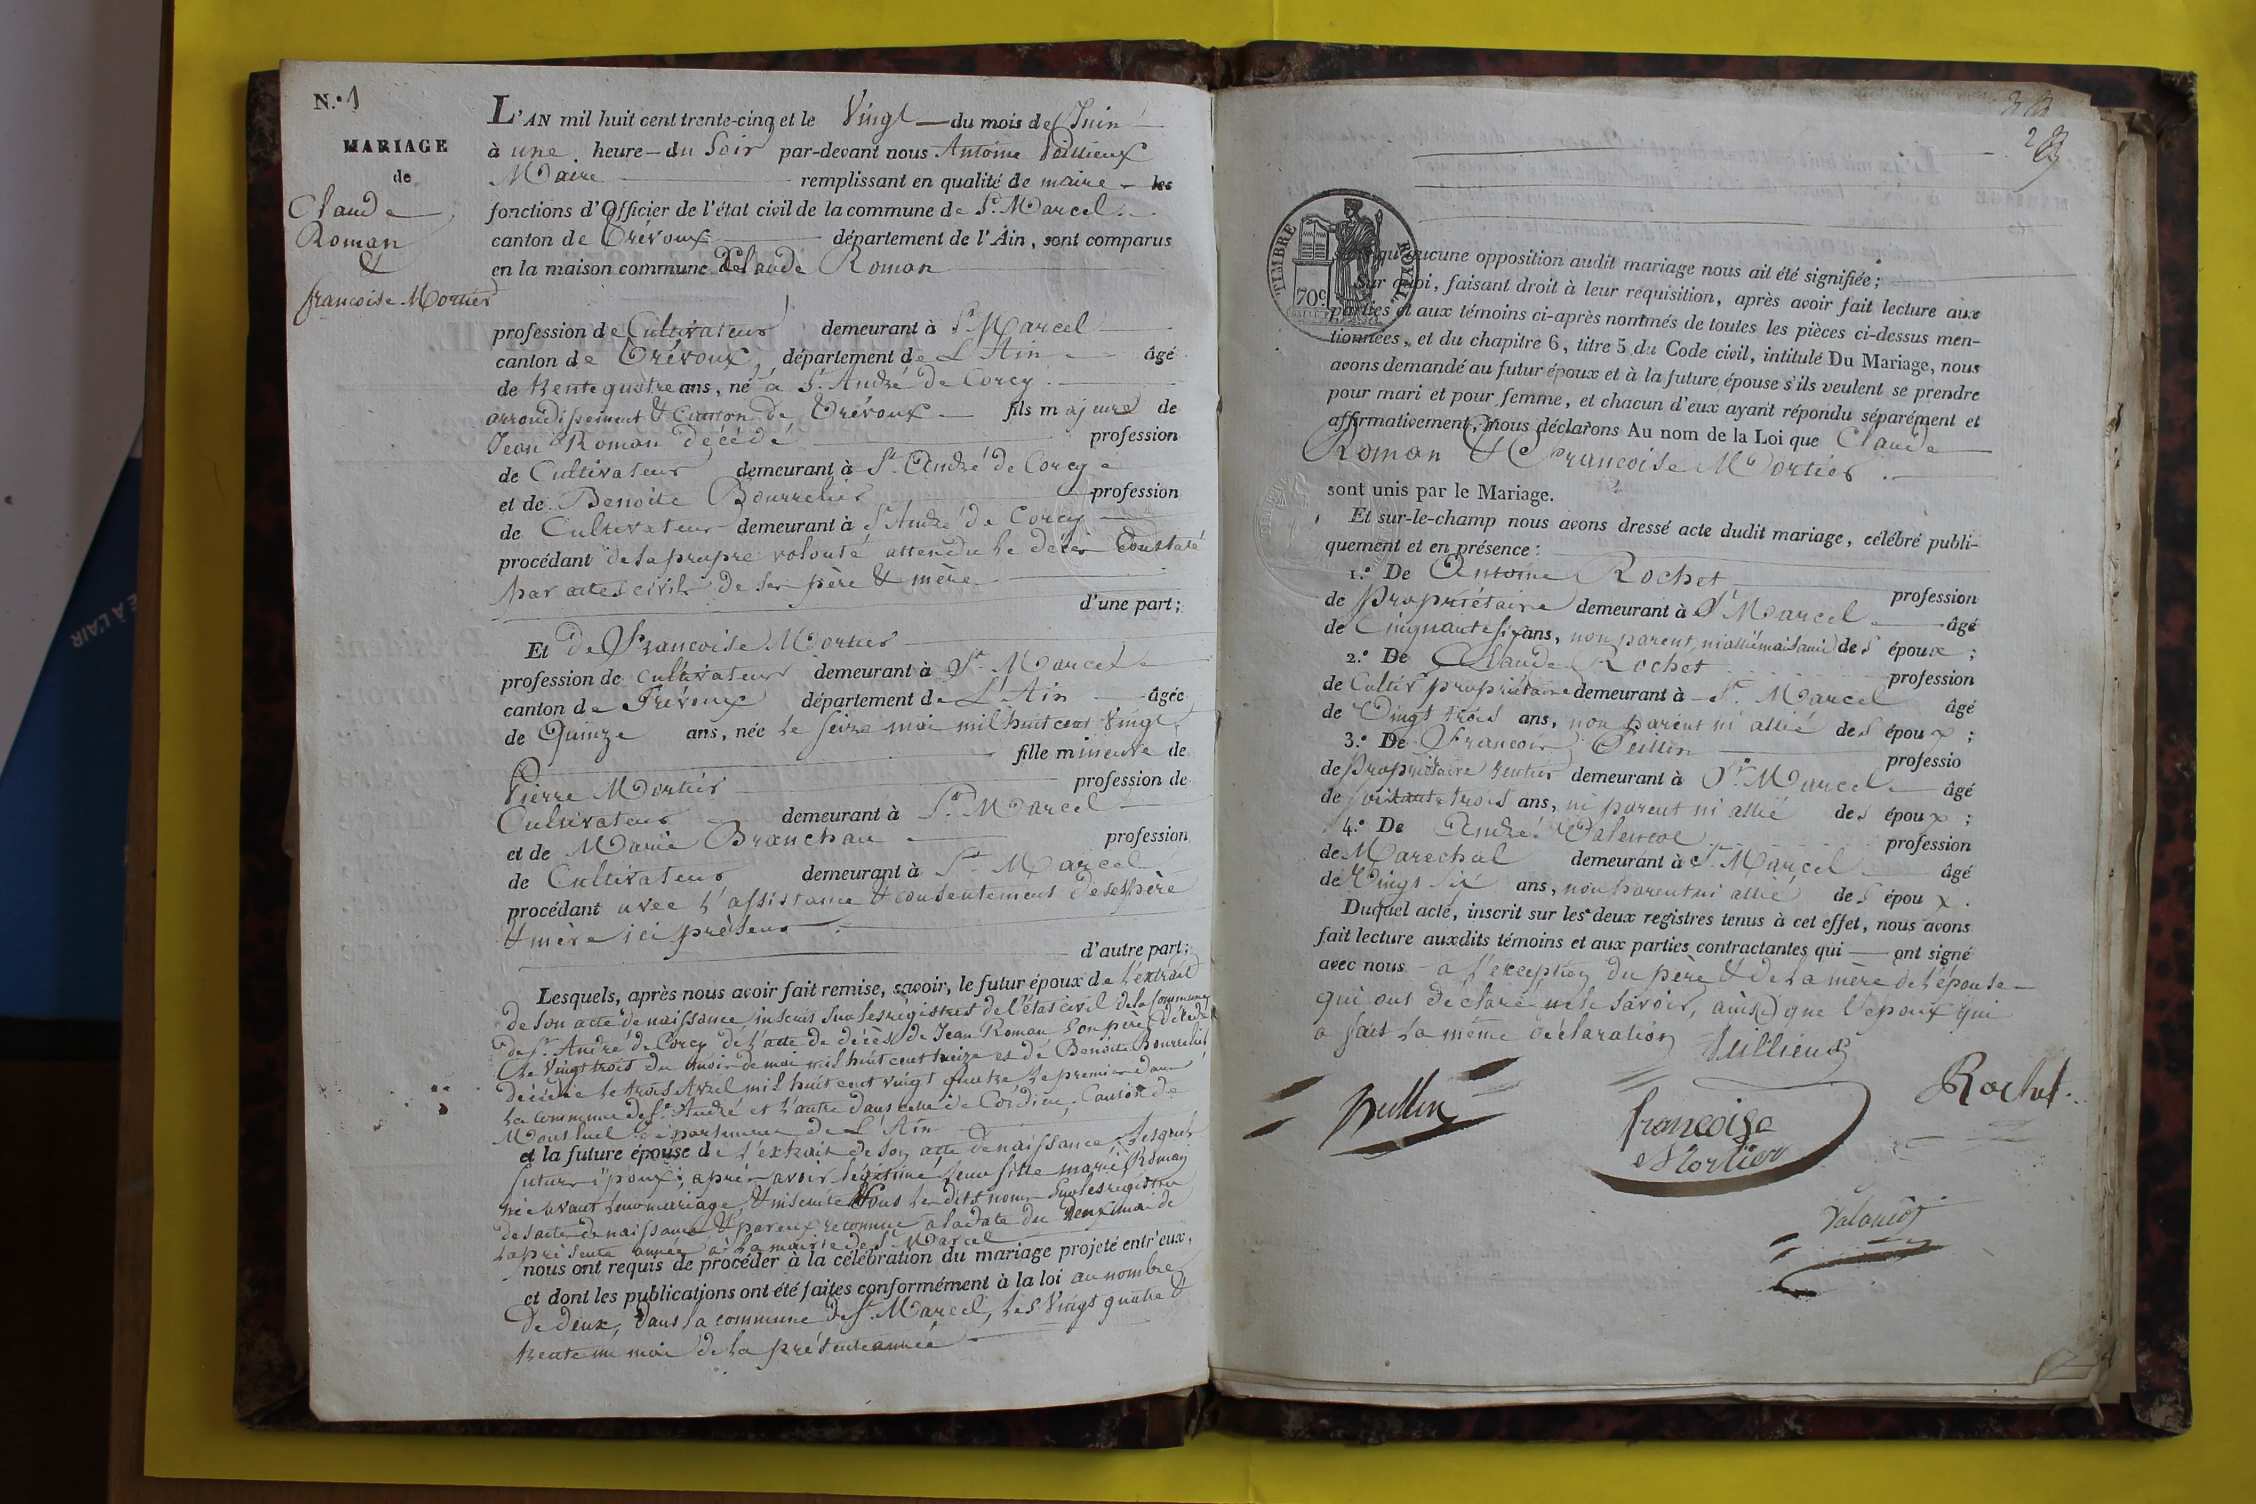 N.º 1
MARIAGE
de
Claude
Roman
&
francoise Mortier
L'AN mil huit cent trente-cinq et le Vingt du mois de Juin
à une heure du Soir par-devant nous Antoine
Maire remplissant en qualité de maire les
fonctions d'Officier de l'état civil de la commune de St. Marcel
canton de Trévoux département de l'Ain, sont comparus
en la maison commune Claude Roman
profession de Cultivateur demeurant à St Marcel
canton de Trévoux département de L'Ain âgé
de trente quatre ans, né à St. André de Corcy
arrondissement & Canton de Trévoux fils majeur de
Jean Roman décédé profession
de Cultivateur demeurant à St. André de Corcy
et de Benoite Bourrelier profession
de Cultivateur demeurant à St André de Corcy
procédant de sa propre volonté attendu le décès Constaté
par actes civils de ses père & mère
d'une part;
Et de Francoise Mortier
profession de Cultivateur demeurant à St. Marcel
canton de Trévoux département de L'Ain âgée
de Quinze ans, née le seize mai mil huit cent Vingt
fille mineure de
Pierre Mortier profession de
Cultivateur demeurant à St. Marcel
et de Marie Branchau profession
de Cultivateur demeurant à St. Marcel
procédant avec L'assistance & consentement de ses père
& mère ici présens
d'autre part;
Lesquels, après nous avoir fait remise, savoir, le futur époux de L'extrait
de son acte de naissance inscrit sur les régistres de l'état civil de la Commune
de St. André de Corcy de l'acte de décès de Jean Roman Son père décédé
Le Vingt trois du mois de mai mil huit cent seize et de Benoite Bourrelier
décédée le trois Avril mil huit cent vingt quatre, Le premier dans
La commune de St. André et L'autre dans celle de Cordieu, Canton de
Montluel département de L'Ain
et la future épouse de L'extrait de son acte de naissance Lesquels
futurs époux, après avoir légitimé Leur fille marie Roman
née avant Leur mariage, & inscrite Sous Les dits noms Sur les registres
des actes de naissance & par eux reconnue a la date du deux mai de
La présente année à la mairie de St. Marcel
nous ont requis de procéder à la célébration du mariage projeté entr'eux,
et dont les publications ont été faites conformément à la loi au nombre
De deux, dans la commune de St. Marcel, Les Vingt quatre &
trente un mai de la présente année
TIMBRE ROYAL
70c.
sans qu'aucune opposition audit mariage nous ait été signifiée;
Sur quoi, faisant droit à leur réquisition, après avoir fait lecture aux
parties et aux témoins ci-après nommés de toutes les pièces ci-dessus men-
tionnées, et du chapitre 6, titre 5 du Code civil, intitulé Du Mariage, nous
avons demandé au futur époux et à la future épouse s'ils veulent se prendre
pour mari et pour femme, et chacun d'eux ayant répondu séparément et
affirmativement, nous déclarons Au nom de la Loi que Claude
Roman & Francoise Mortier
sont unis par le Mariage.
Et sur-le-champ nous avons dressé acte dudit mariage, célébré publi-
quement et en présence:
1.º De Antoine Rochet profession
de propriétaire demeurant à St Marcel âgé
de Cinquante six ans, non parent, ni allié mais ami des époux;
2.º De Claude Rochet profession
de Cultivr propriétaire demeurant à St. Marcel âgé
de Vingt trois ans, non parent ni allié des époux;
3.º De Francois Peillin professio
de propriétaire rentier demeurant à St. Marcel âgé
de soixante trois ans, ni parent ni allié des époux;
4.º De André Valencot profession
de Marechal demeurant à St. Marcel âgé
de Vingt six ans, non parent ni allié des époux.
Duquel acte, inscrit sur les deux registres tenus à cet effet, nous avons
fait lecture auxdits témoins et aux parties contractantes qui ont signé
avec nous a l'exception du père & de la mère de l'épouse
qui ont déclaré ne le savoir, ainsi que l'epoux qui
a fait la même déclaration
Rochet
francoise
Mortier